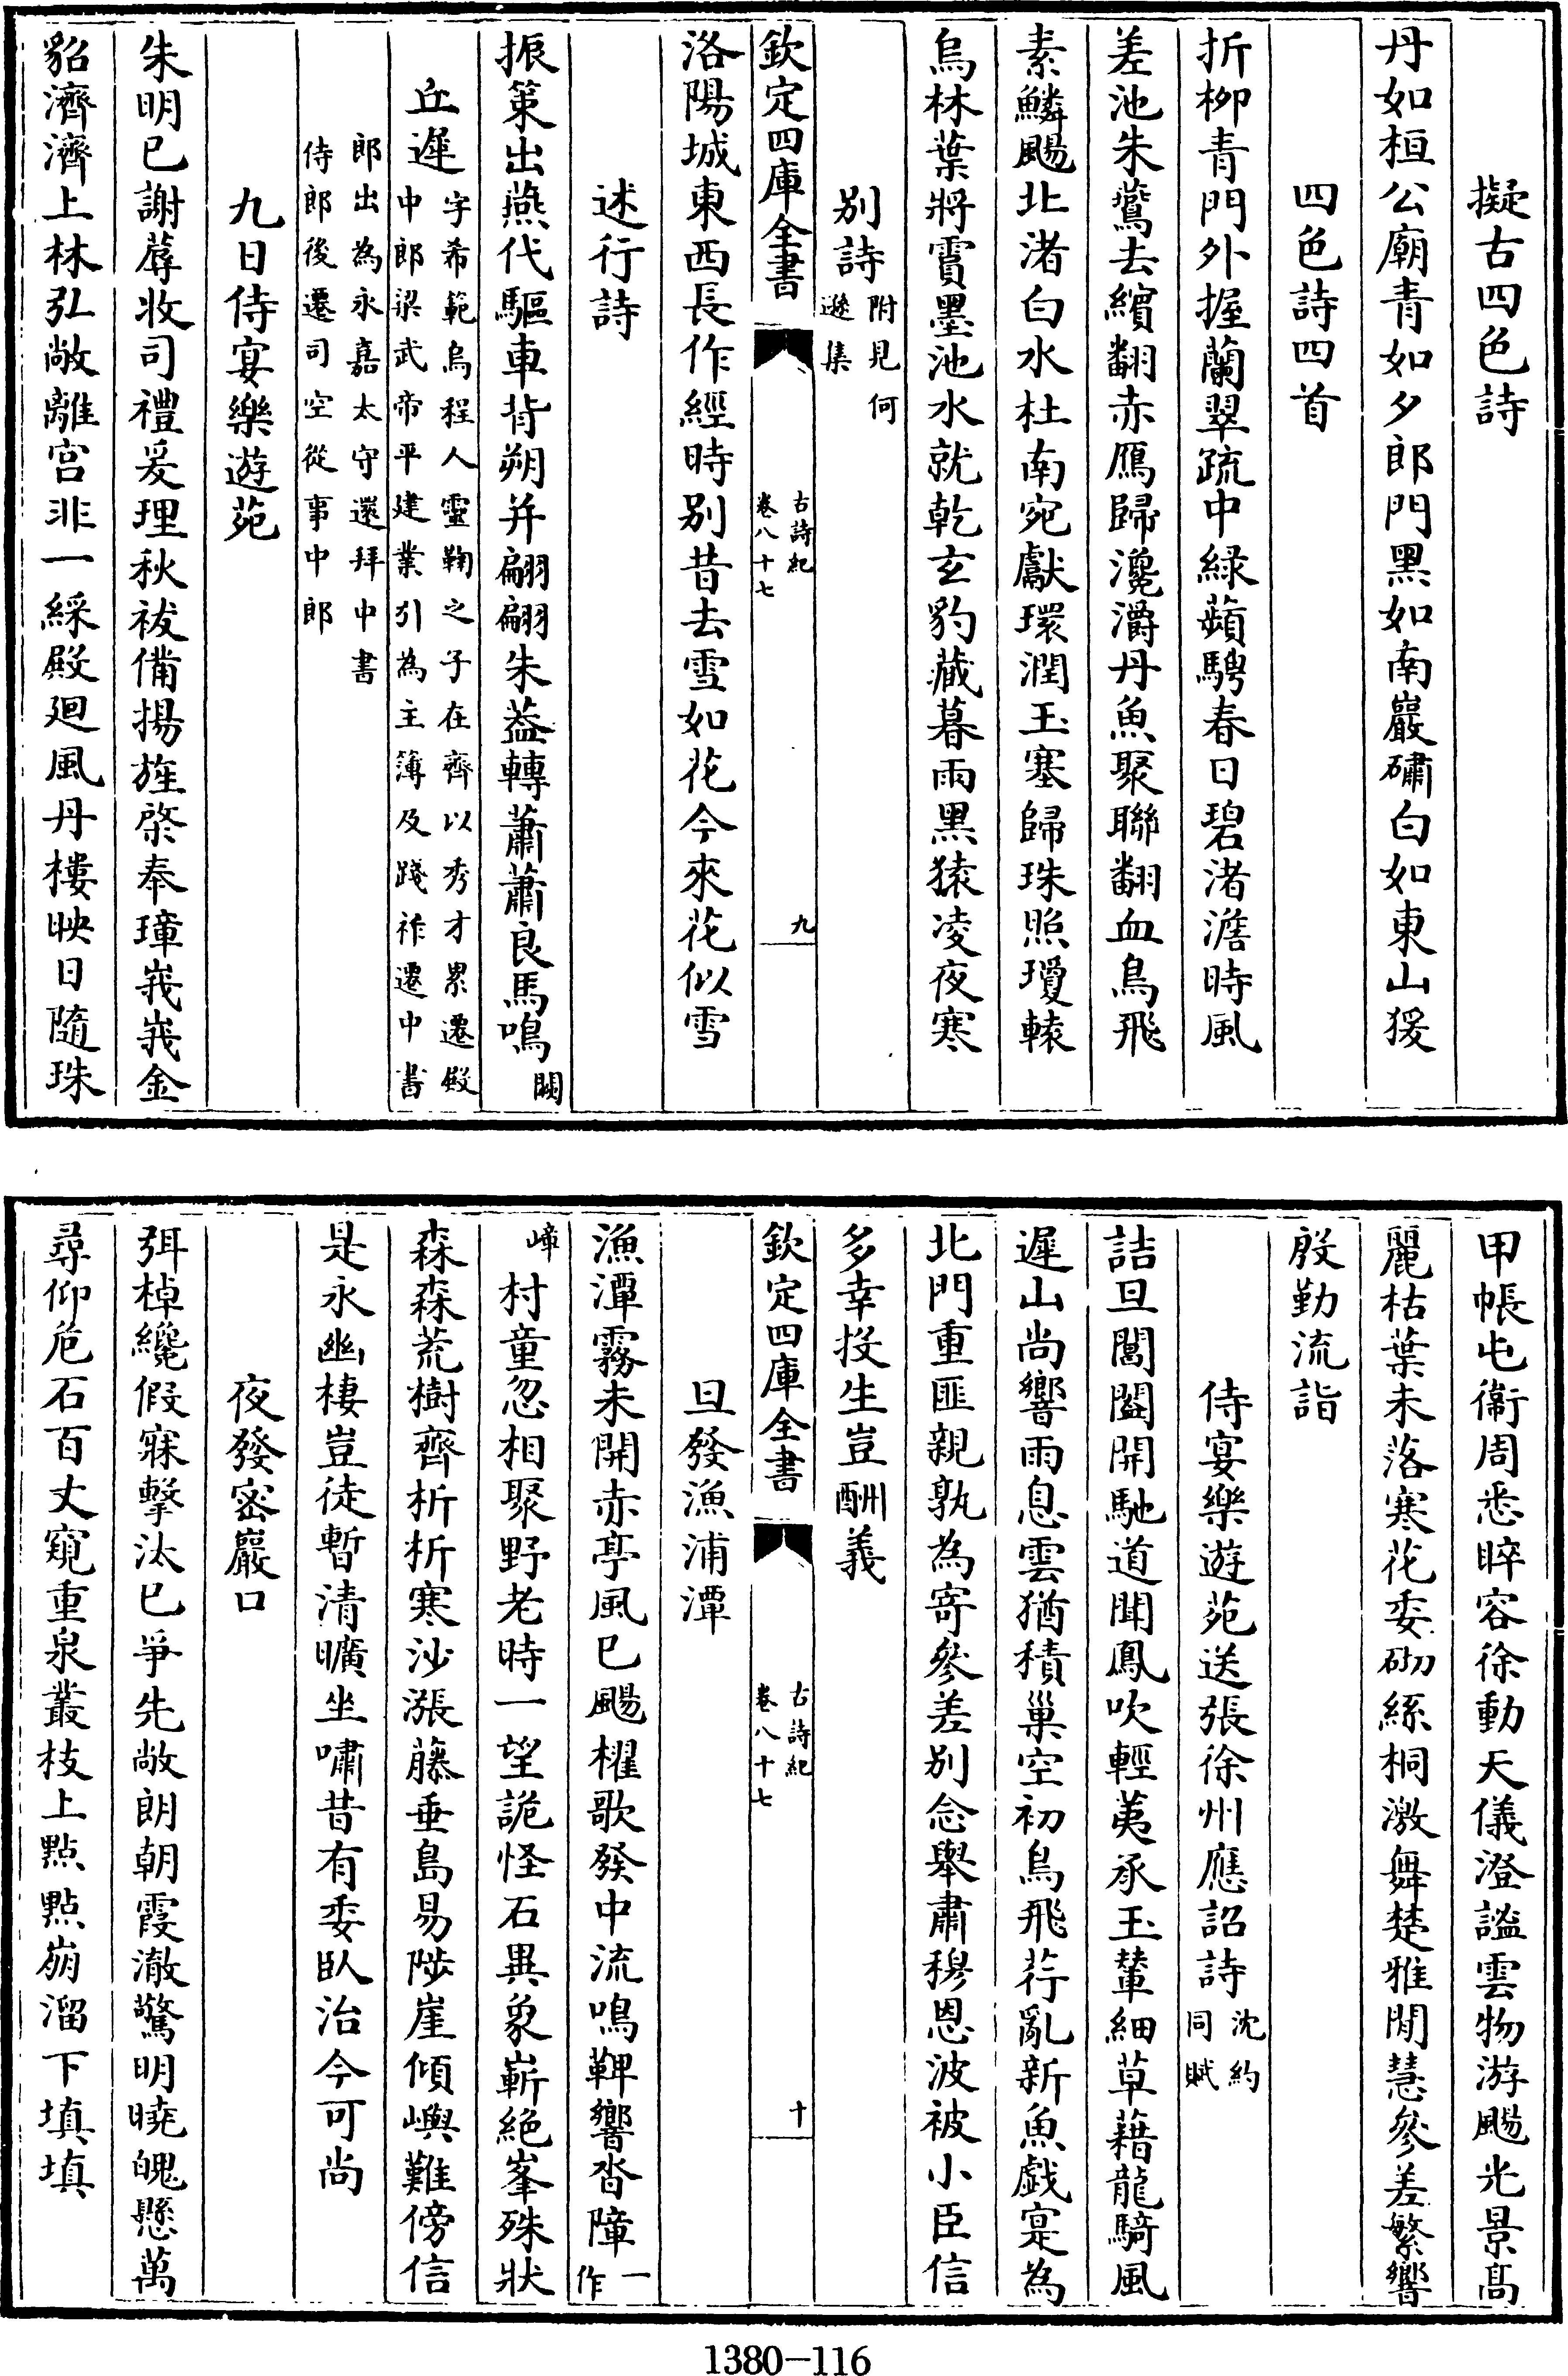 擬古四色詩
丹如桓公廟青如夕郎門黑如南巖磠白如東山猨
四色詩四首
折柳青門外握蘭翠疏中綠蘋騁春日碧渚澹時風
差池朱鷺去繽翻赤鴈歸瀺灂丹魚聚聯翻血鳥飛
素鱗颺北渚白水杜南宛獻環潤玉塞歸珠照瓊轅
烏林葉將霣墨池水就乾玄豹藏暮雨黑猿凌夜寒
別詩附見何
遜集
欽定四庫全書
古詩紀
卷八十七
九
洛陽城東西長作經時別昔去雪如花今來花似雪
述行詩
振策出燕代驅車背朔并翩翩朱葢轉蕭蕭良馬鳴闕
丘遲字希範烏程人靈鞠之子在齊以秀才累遷殿
中郎梁武帝平建業引為主簿及踐祚遷中書
郎出為永嘉太守還拜中書
侍郎後遷司空從事中郎
九日侍宴樂遊苑
朱明已謝蓐收司禮爰理秋祓備揚旌棨奉璋峩峩金
貂濟濟上林弘敞離宮非一綵殿廻風丹樓映日隨珠
甲帳屯衞周悉睟容徐動天儀澄謐雲物游颺光景高
麗枯葉未落寒花委砌絲桐激舞楚雅閒慧參差繁響
殷勤流詣
侍宴樂遊苑送張徐州應詔詩沈約
同賦
詰旦閶闔開馳道聞鳳吹輕荑承玉輦細草藉龍騎風
遲山尚響雨息雲猶積巢空初鳥飛荇亂新魚戲寔為
北門重匪親孰為寄參差別念舉肅穆恩波被小臣信
多幸投生豈酬義
欽定四庫全書
古詩紀
卷八十七
十
旦發漁浦潭
漁潭霧未開赤亭風已颺櫂歌發中流鳴鞞響沓障一
作
嶂村童忽相聚野老時一望詭怪石異象嶄絕峯殊狀
森森荒樹齊析析寒沙漲藤垂島易陟崖傾嶼難傍信
是永幽棲豈徒暫清曠坐嘯昔有委臥治今可尚
夜發密巖口
弭棹纔假寐擊汰已爭先敞朗朝霞澈驚明曉魄懸萬
尋仰危石百丈窺重泉叢枝上點點崩溜下填填
1380-116